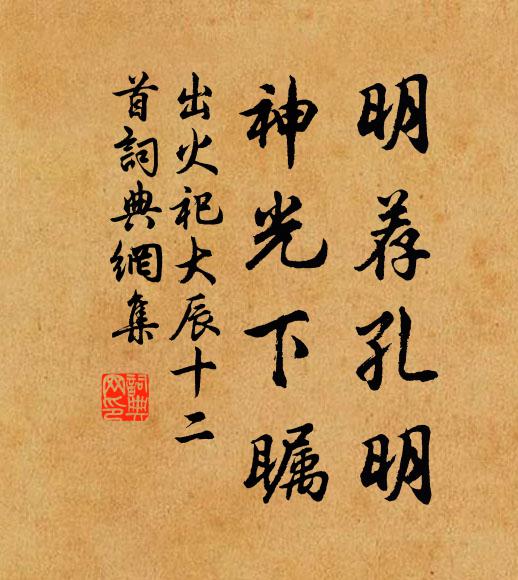 明荐孔明
神光下瞩
出火祀大辰十二
首詞典網集
詞典
网印